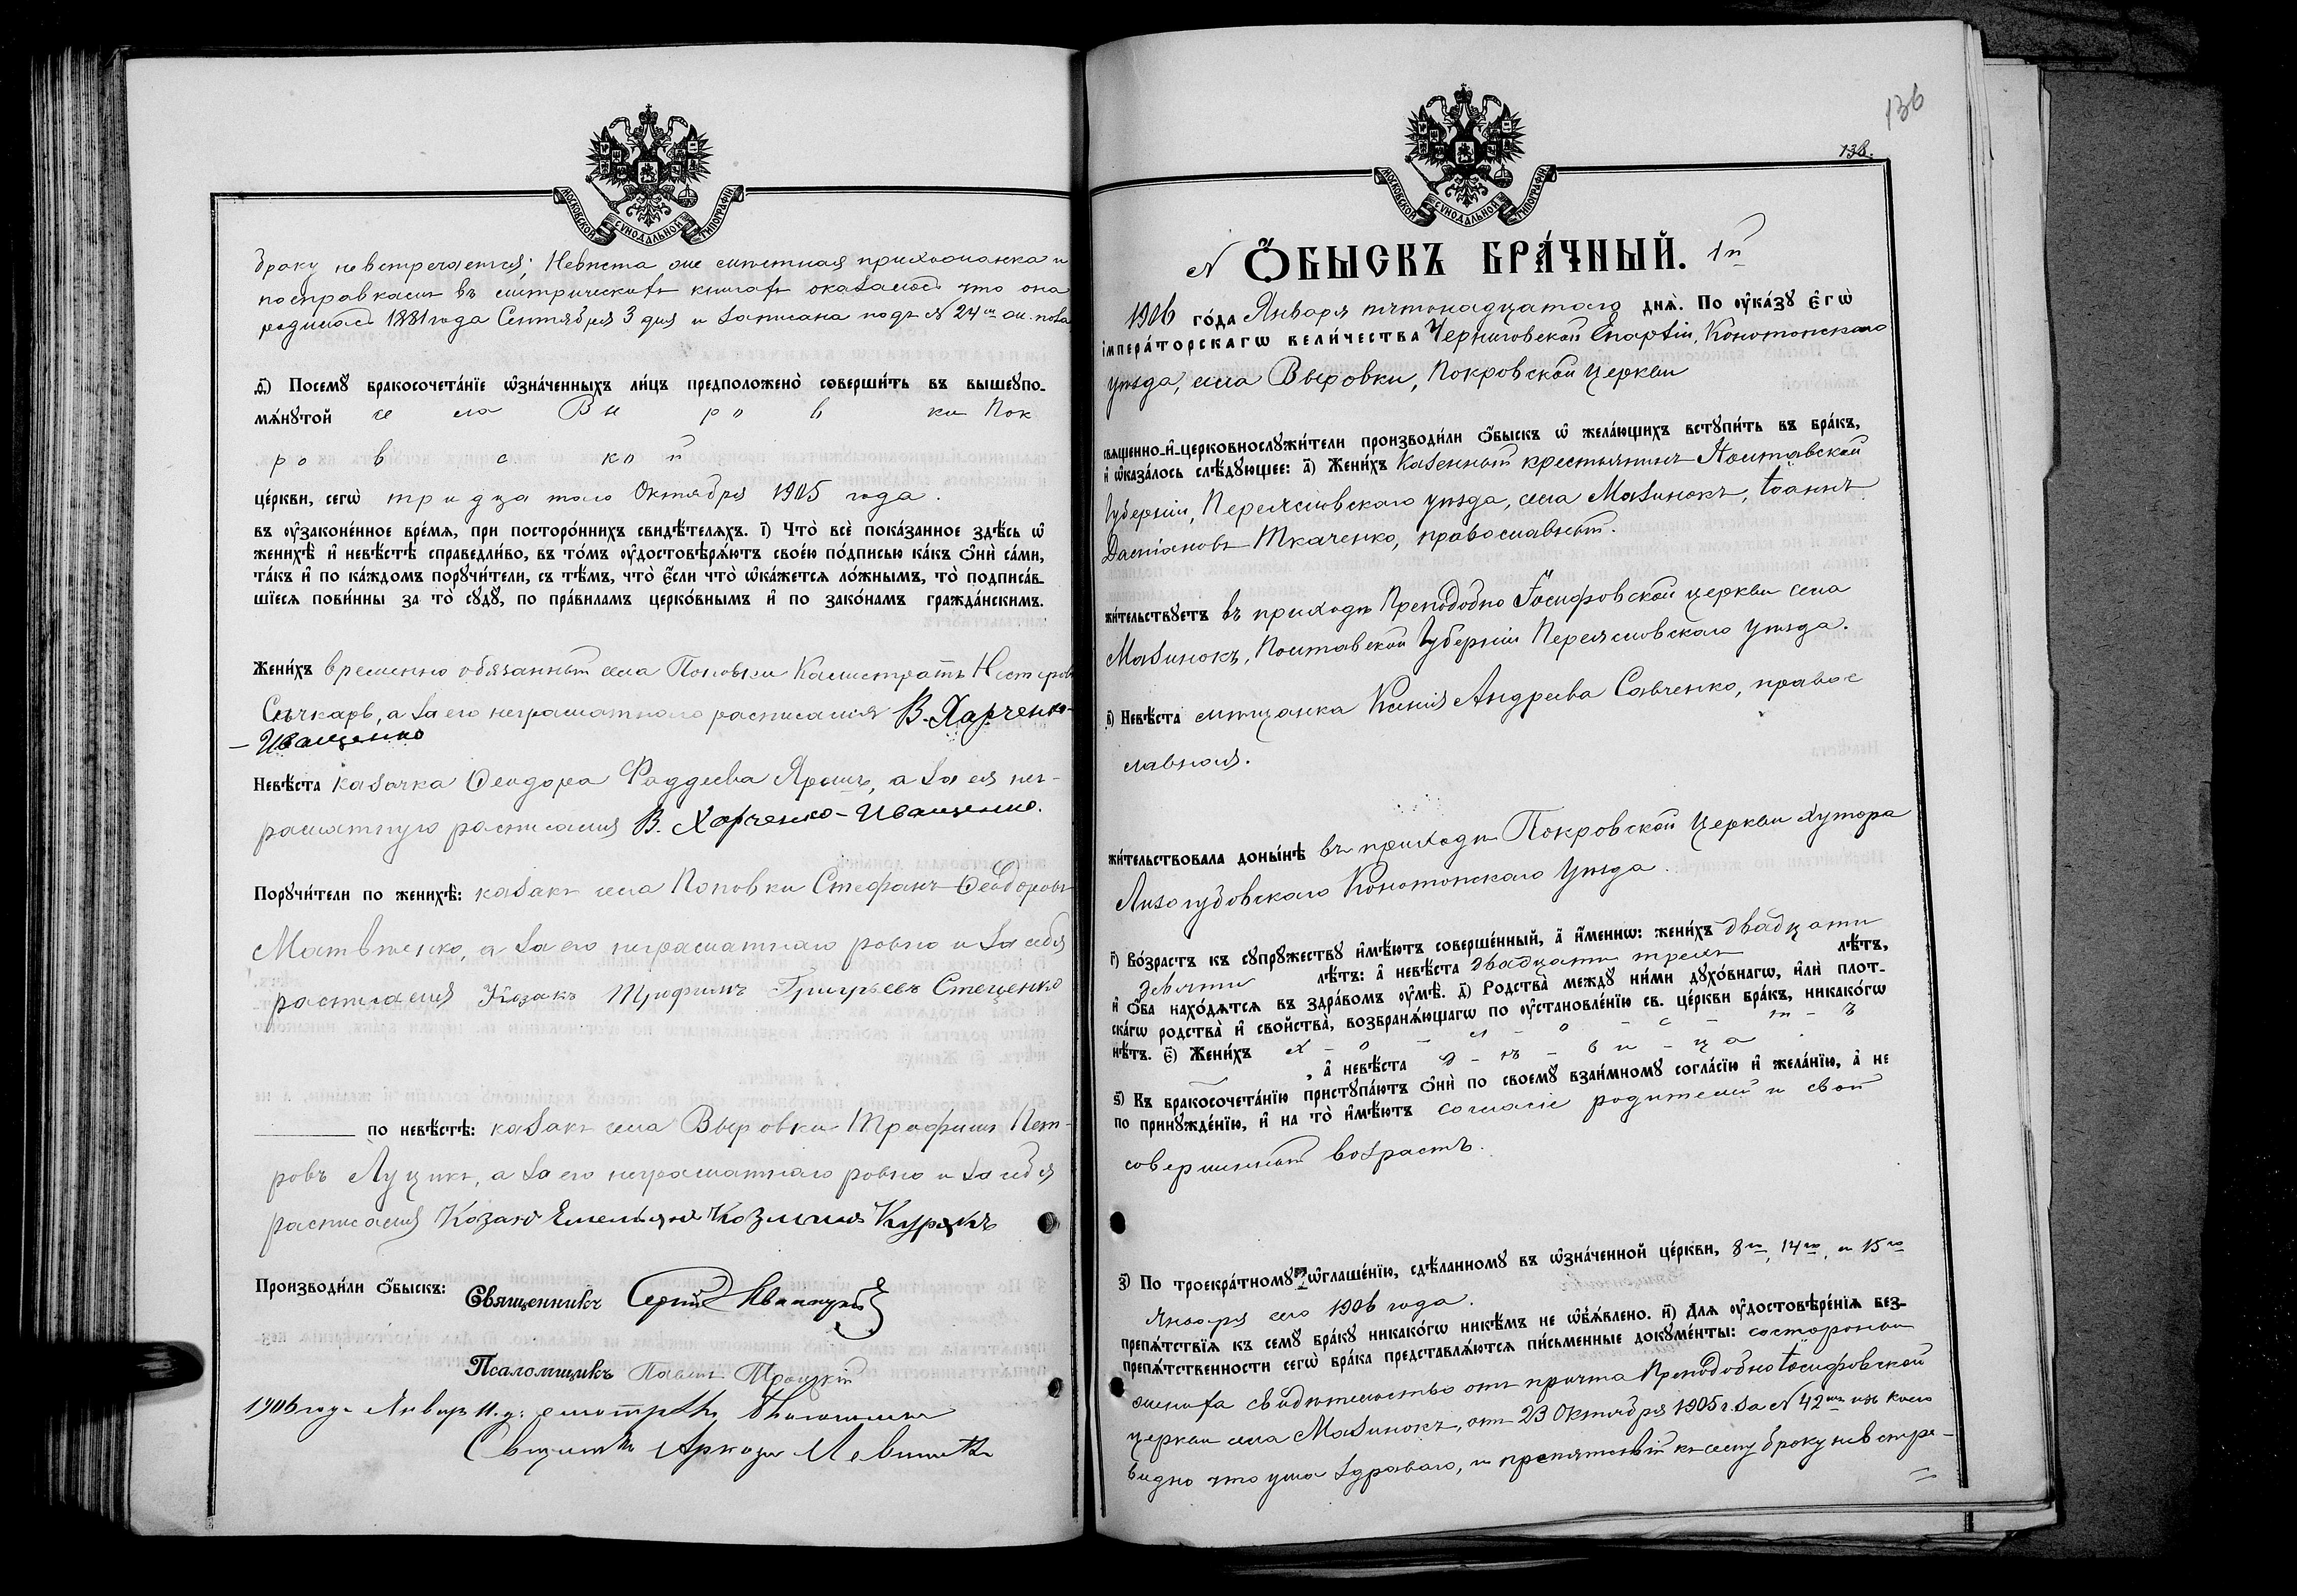 МОСКОВСКОЙ СѴНОДАЛЬНОЙ ТИПОГРАФІИ
браку невстречается; Невѣста же мѣстная прихожанка и
посправкамъ въ метрическихъ книгахъ оказалось что она
родилась 1881 года Сентября 3 дня и записана подъ № 24м
д҃) Посемꙋ бракосочета́нїе ѡ҆зна́ченныхъ ли́цъ предположено̀ соверши́ть въ вышеꙋпо-
мѧ́нꙋтой се ла Вы ро в ки Пок
ро в с ко й
це́ркви, сегѡ̀ тридцатаго Октября 1905 года.
въ ᲂу҆законе́нное вре́мѧ, при посторо́ннихъ свидѣ́телѧхъ. і҃) Что̀ всѐ пока́занное здѣ́сь ѡ҆
женихѣ̀ и҆ невѣ́стѣ справедли́во, въ то́мъ ᲂу҆достовѣрѧ́ютъ свое́ю по́дписью ка́къ ѻ҆нѝ са́ми,
та́къ и҆ по ка́ждомъ порꙋчи́тели, съ тѣ́мъ, что̀ є҆́сли что̀ ѡ҆ка́жется ло́жнымъ, то̀ подписа́в-
шїесѧ пови́нны за то̀ сꙋдꙋ̀, по пра́виламъ церко́внымъ и҆ по зако́намъ гражда́нскимъ.
Жени́хъ временно обязанный села Поповки Калистратъ Нестеровъ
Сѣчкарь, а за его неграматнаго росписался В. Харченко-
-Иващенко
Невѣ́ста казачка Ѳеодора Фаддеева Ярошъ, а за ея нег-
раматную росписался В. Харченко-Иващенко.
Порꙋчи́тели по женихѣ̀: казакъ села Поповки Стефанъ Ѳеодоровъ
Матвѣенко, а за его неграматнаго ровно и за себя
росписался Козакъ Трофимъ Григорьевъ Стеценко
по невѣ́стѣ: казакъ села Выровки Трофимъ Пет-
ровъ Луцикъ, а за его неграматнаго ровно и за себя
росписался Козакъ Емельянъ Козьминъ
Производи́ли ѻ҆́быскъ: Священникъ Сергій
Псаломщикъ Павелъ Троцкій
1906 года Января 11. д. смотрѣлъ
136
136.
МОСКОВСКОЙ СѴНОДАЛЬНОЙ ТИПОГРАФІИ
№ Ѻ҆́БЫСКЪ БРА́ЧНЫЙ. 1й
1906 го́да Января пятонадцатаго днѧ̀. По ᲂу҆ка́зꙋ є҆гѡ̀
і҆мпера́торскагѡ вели́чества Черниговской Епархіи, Конотопскаго
уѣзда, села Выровки, Покровской церкви
свѧще́нно-и҆-церковнослꙋжи́тели производи́ли ѻ҆́быскъ ѡ҆ жела́ющихъ вступи́ть въ бра́къ,
и҆ ѡ҆каза́лось слѣ́дꙋющее: а҃) Жени́хъ казенный крестьянинъ Полтавской
Губерніи, Переяславскаго уѣзда, села Мазинокъ, Іоаннъ
Даміановъ Ткаченко, православный.
жи́тельствꙋетъ въ приходѣ Преподобно Іосифовской церкви села
Мазинокъ, Полтавской Губерніи Переяславскаго Уѣзда.
в҃) Невѣ́ста мѣщанка Ксенія Андреева Савченко, правос
лавная.
жи́тельствовала доны́нѣ въ приходѣ Покровской церкви Хутора
Лизогубовскаго Конотопскаго Уѣзда.
г҃) Во́зрастъ къ сꙋпрꙋ́жествꙋ и҆мѣ́ютъ соверше́нный, а҆ и҆́меннѡ: жени́хъ двадцати
девяти лѣ́тъ: а҆ невѣ́ста двадцати трехъ лѣ́тъ,
и҆ ѻ҆́ба нахо́дятся въ здра́вомъ ᲂу҆мѣ̀. д҃) Родства̀ междꙋ̀ ни́ми дꙋхо́внагѡ, и҆лѝ плот-
ска́гѡ родства̀ и҆ свойства̀, возбранѧ́ющагѡ по ᲂу҆становле́нїю св. це́ркви бра́къ, никако́гѡ
нѣ́тъ. є҃) Жени́хъ х-о-л-о-с-т-ъ
, а҆ невѣ́ста д-ѣ-ви-ца
ѕ҃) Къ бракосочета́нїю пристꙋпа́ютъ ѻ҆нѝ по своемꙋ̀ взаи́мномꙋ согла́сїю и҆ жела́нїю, а҆ не
по принꙋжде́нїю, и҆ на то̀ и҆мѣ́ютъ согласіе родителей и свой
совершенный возрастъ.
з҃) По троекра́тномꙋ ѡ҆глаше́нїю, сдѣ́ланномꙋ въ ѡ҆зна́ченной це́ркви, 8го, 14го, и 15го
Января сего 1906 года.
препѧ́тствїѧ къ семꙋ̀ бра́кꙋ никако́гѡ никѣ́мъ не ѡ҆б̾ѧ́влено. и҃) Длѧ ᲂу҆достовѣре́нїѧ без-
препѧ́тственности сегѡ̀ бра́ка представлѧ́ются пи́сьменные докꙋме́нты: состороны
жениха свидѣтельство отъ причта Преподобно Іосифовской
церкви села Мазинокъ, отъ 23 Октября 1905 г. за № 42мъ изъ коего
видно что ума здраваго, и препятствій къ сему браку невстре-